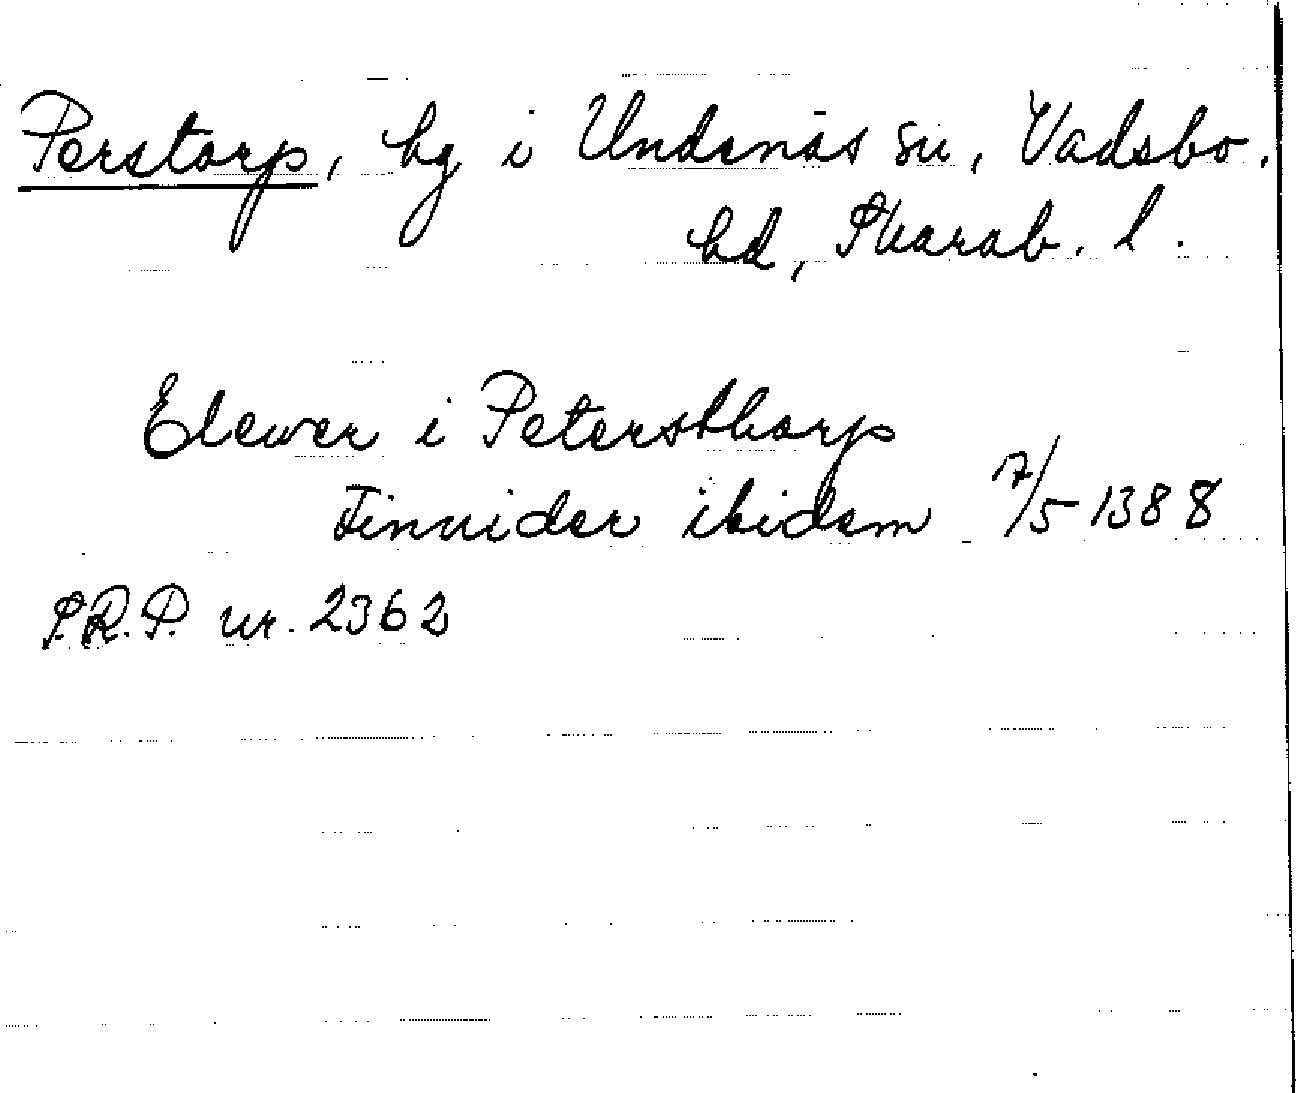 Perstorp, hg i Undenäs sn, Vadsbo.
hd, Skarab. l.
Elewer i Petersthorp
Finnider ibidem 7/5 1388
P.R.P. nr. 2362